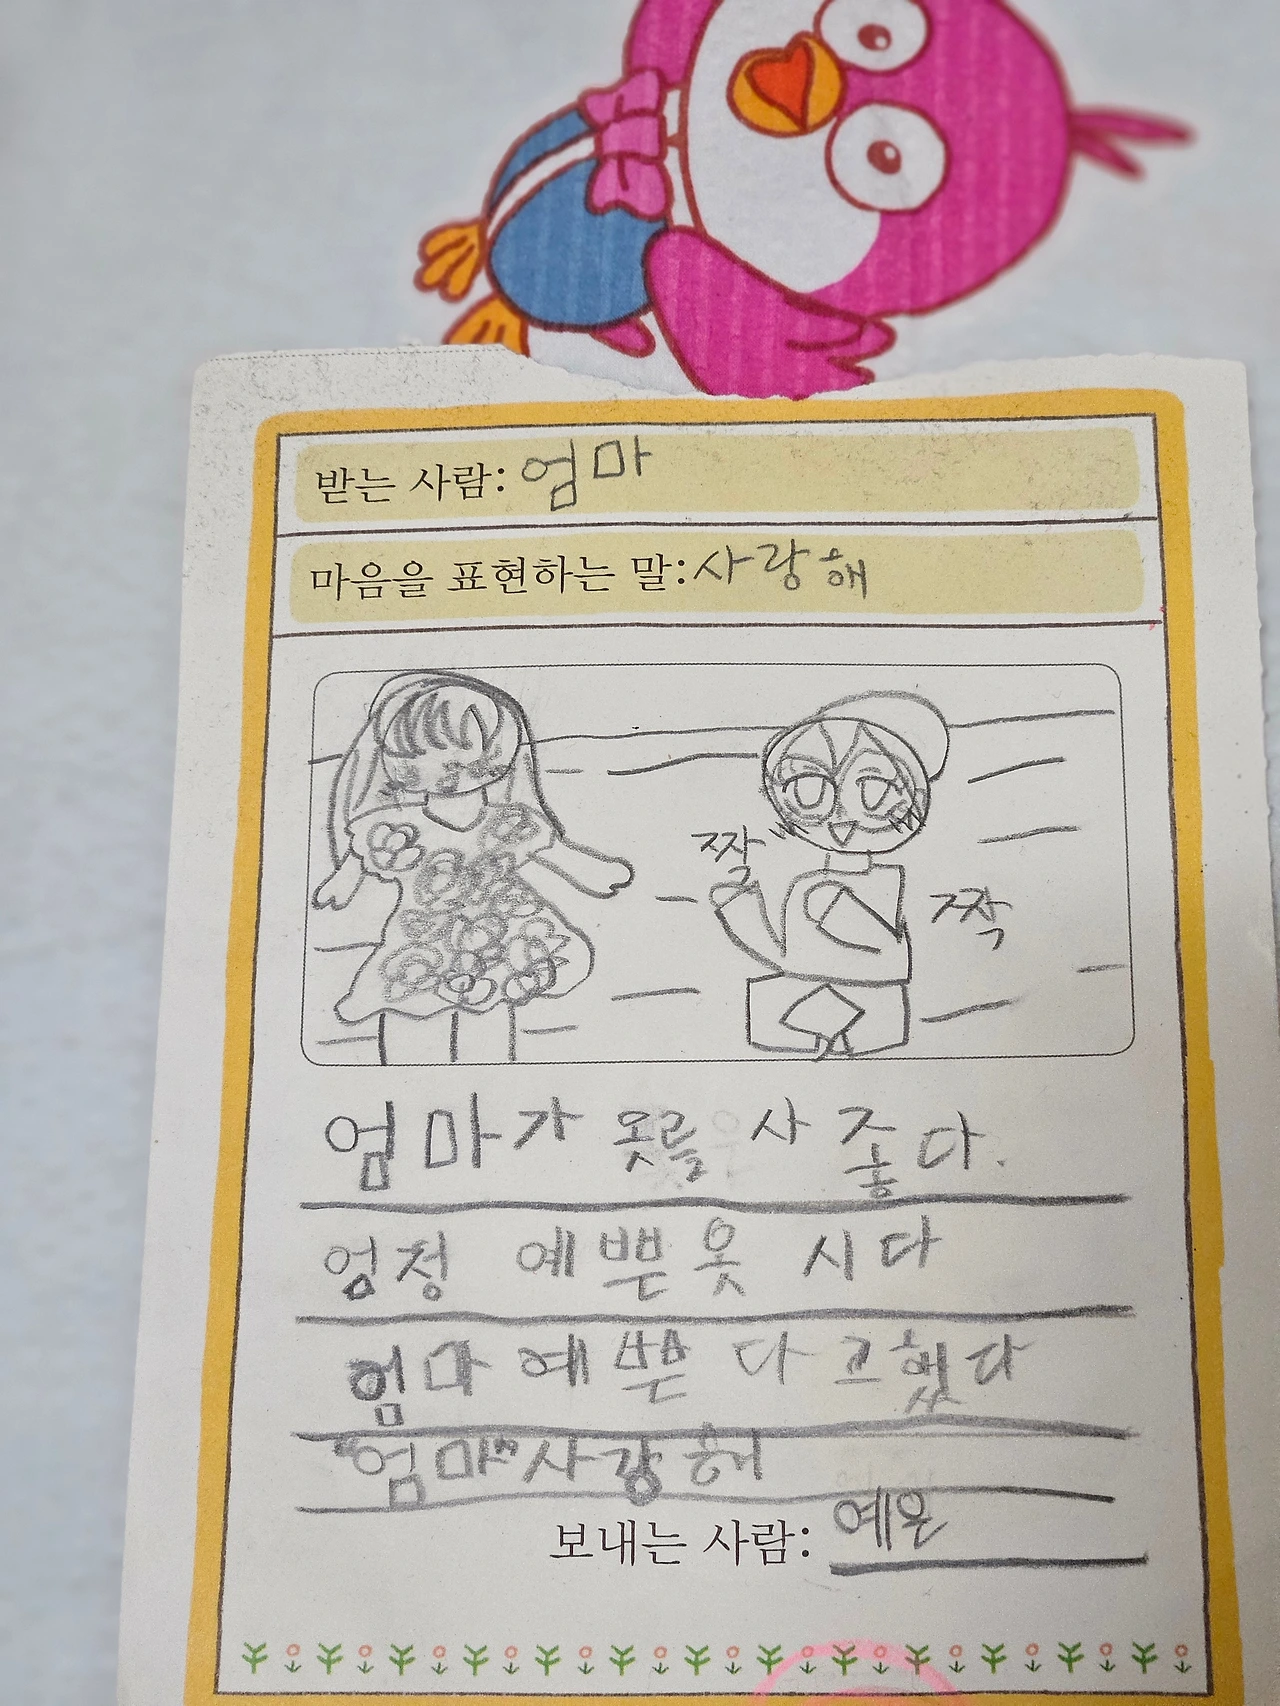 받는 사람: 엄마
마음을 표현하는 말: 사랑해
짝 짝
엄마가 옷를 사 좋다.
엄청 예쁜 옷 시다
엄마 예쁜 다고했다
"엄마" 사랑해
보내는 사람: 예은